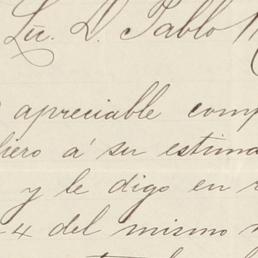 Lic. D. Pablo
apreciable comp
fiero á su estima
y le digo en
4 del mismo